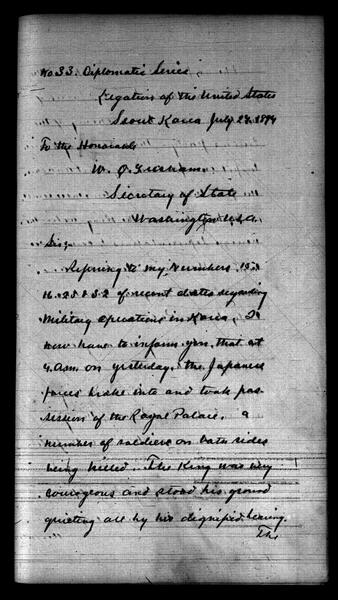 No 33. Diplomatic Series
Legation of the United States
Seoul Korea July 24, 1894
To the Honorable
W. Q. Gresham
Secretary of State
Washington U.S.A.
Sir;
Referring to my Numbers 15,
16, 25 & 32 of recent dates regarding
Military operations in Korea, I
now have to inform you, that at
4 a.m. on yesterday, the Japanese
forces broke into and took pos-
session of the Royal Palace, a
number of soldiers on both sides
being killed. The King was very
courageous and stood his ground
quieting all by his dignified bearing.
The